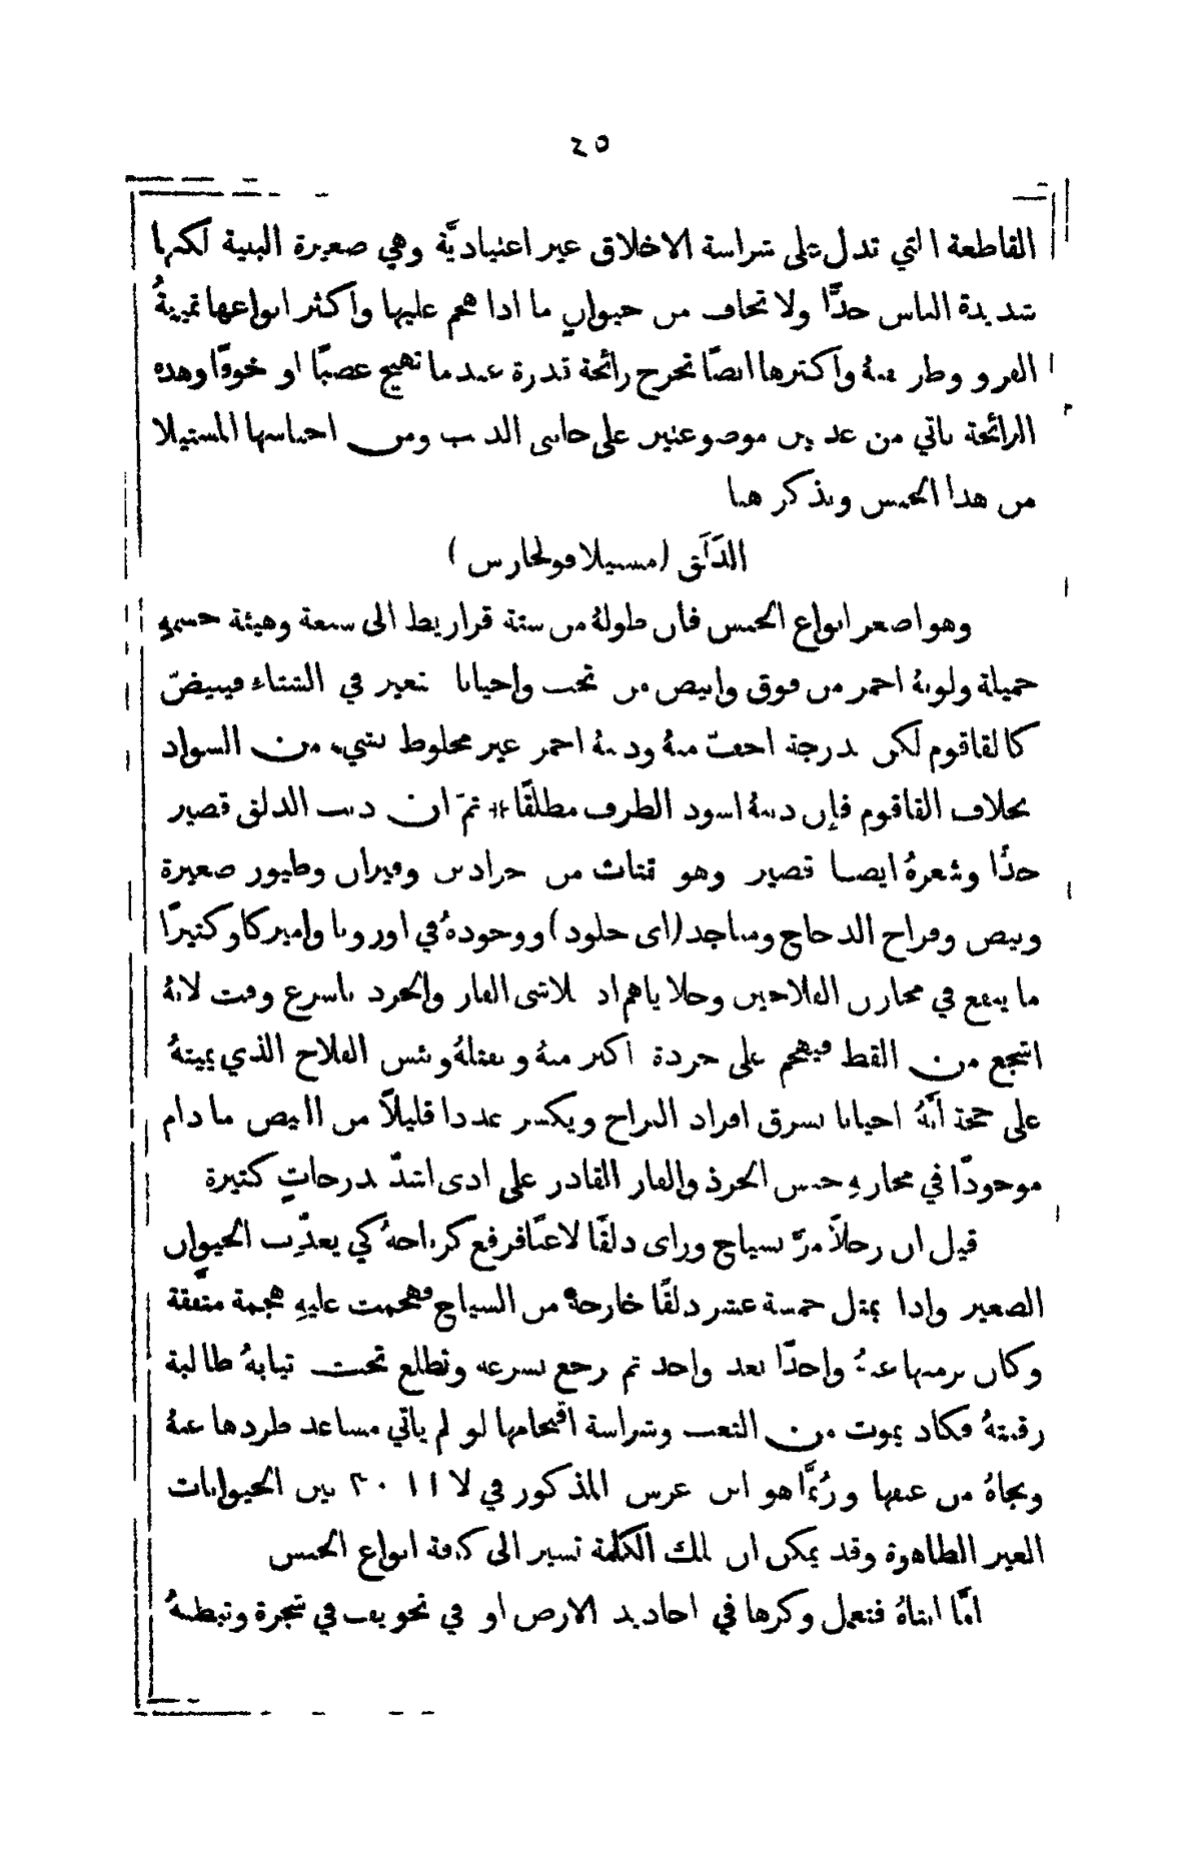 ٢٥
القاطعة التي تدل على شراسة الاخلاق غير اعتياديَّة وهي صغيرة البنية لكنها
شديدة الباس جدًّا ولا تخاف من حيوانٍ ما اذا هجم عليها واكثر انواعها ثمينةُ
الفرو وطر واكثرها ايضًا تخرج رائحة قذرة عندما تهيج غضبًا او خوفًا وهذه
الرائحة تاتي من غدتين موضوعتين على جانبي الذنب ومن اجناسها المستيلا
من هذا الجنس ونذكر هنا
الدَلَق (مستيلا فولجارس)
وهو اصغر انواع الجنس فان طولهُ من ستة قراريط الى سبعة وهيئة جسمهِ
جميلة ولونهُ احمر من فوق وابيض من تحت واحيانا تتغير في الشتاء فيبيضّ
كالقاقوم لكن بدرجة اخفّ منهُ وذنبهُ احمر غير مخلوط بشيء من السواد
بخلاف القاقوم فإن ذنبهُ اسود الطرف مطلقًا * ثمّ ان ذنب الدلق قصير
جدًّا وشعرهُ ايضا قصير وهو يقتات من جرادين وفيران وطيور صغيرة
وبيض وفراخ الدجاج ومناجد (اى خلود) ووجودهُ في اوروبا واميركا وكثيرًا
ما ينفع في مخازن الفلاحين وخلاياهم اذ يلاشى الفار والجرذ باسرع وقت لانهُ
اشجع من القط فيهجم على جرذة اكبر منهُ ويقتلهُ وبئس الفلاح الذي يميتهُ
على حجة انَّهُ احيانا يسرق افراد الفراخ ويكسر عددا قليلاً من البيض ما دام
موجودًا في مخازنهِ جنس الجرذ والفار القادر على اذى اشدّ بدرجاتٍ كثيرة
قيل ان رجلاً مرّ بسياج وراى دلقًا لاعبًا فرفع كرباجهُ كي يعذّب الحيوان
الصغير واذا بمثل خمسة عشر دلقًا خارجة من السياج فهجمت عليهِ هجمة متّفقة
وكان يرميها عنهُ واحدًا بعد واحد ثم رجع بسرعه وتطلع تحت ثيابهُ طالبة
رقبتهُ فكاد يموت من التعب وشراسة اقتحامها لو لم ياتي مساعد طردها عنهُ
ونجاهُ من عنفها ورُبَّما هو ابن عرس المذكور في لا ١١ ٠ ٢٠ بين الحيوانات
الغير الطاهرة وقد يمكن ان تلك الكلمة تشير الى كافة انواع الجنس
امّا انثاهُ فتعمل وكرها في اخاديد الارض او في تجويف في شجرة وتبطنهُ